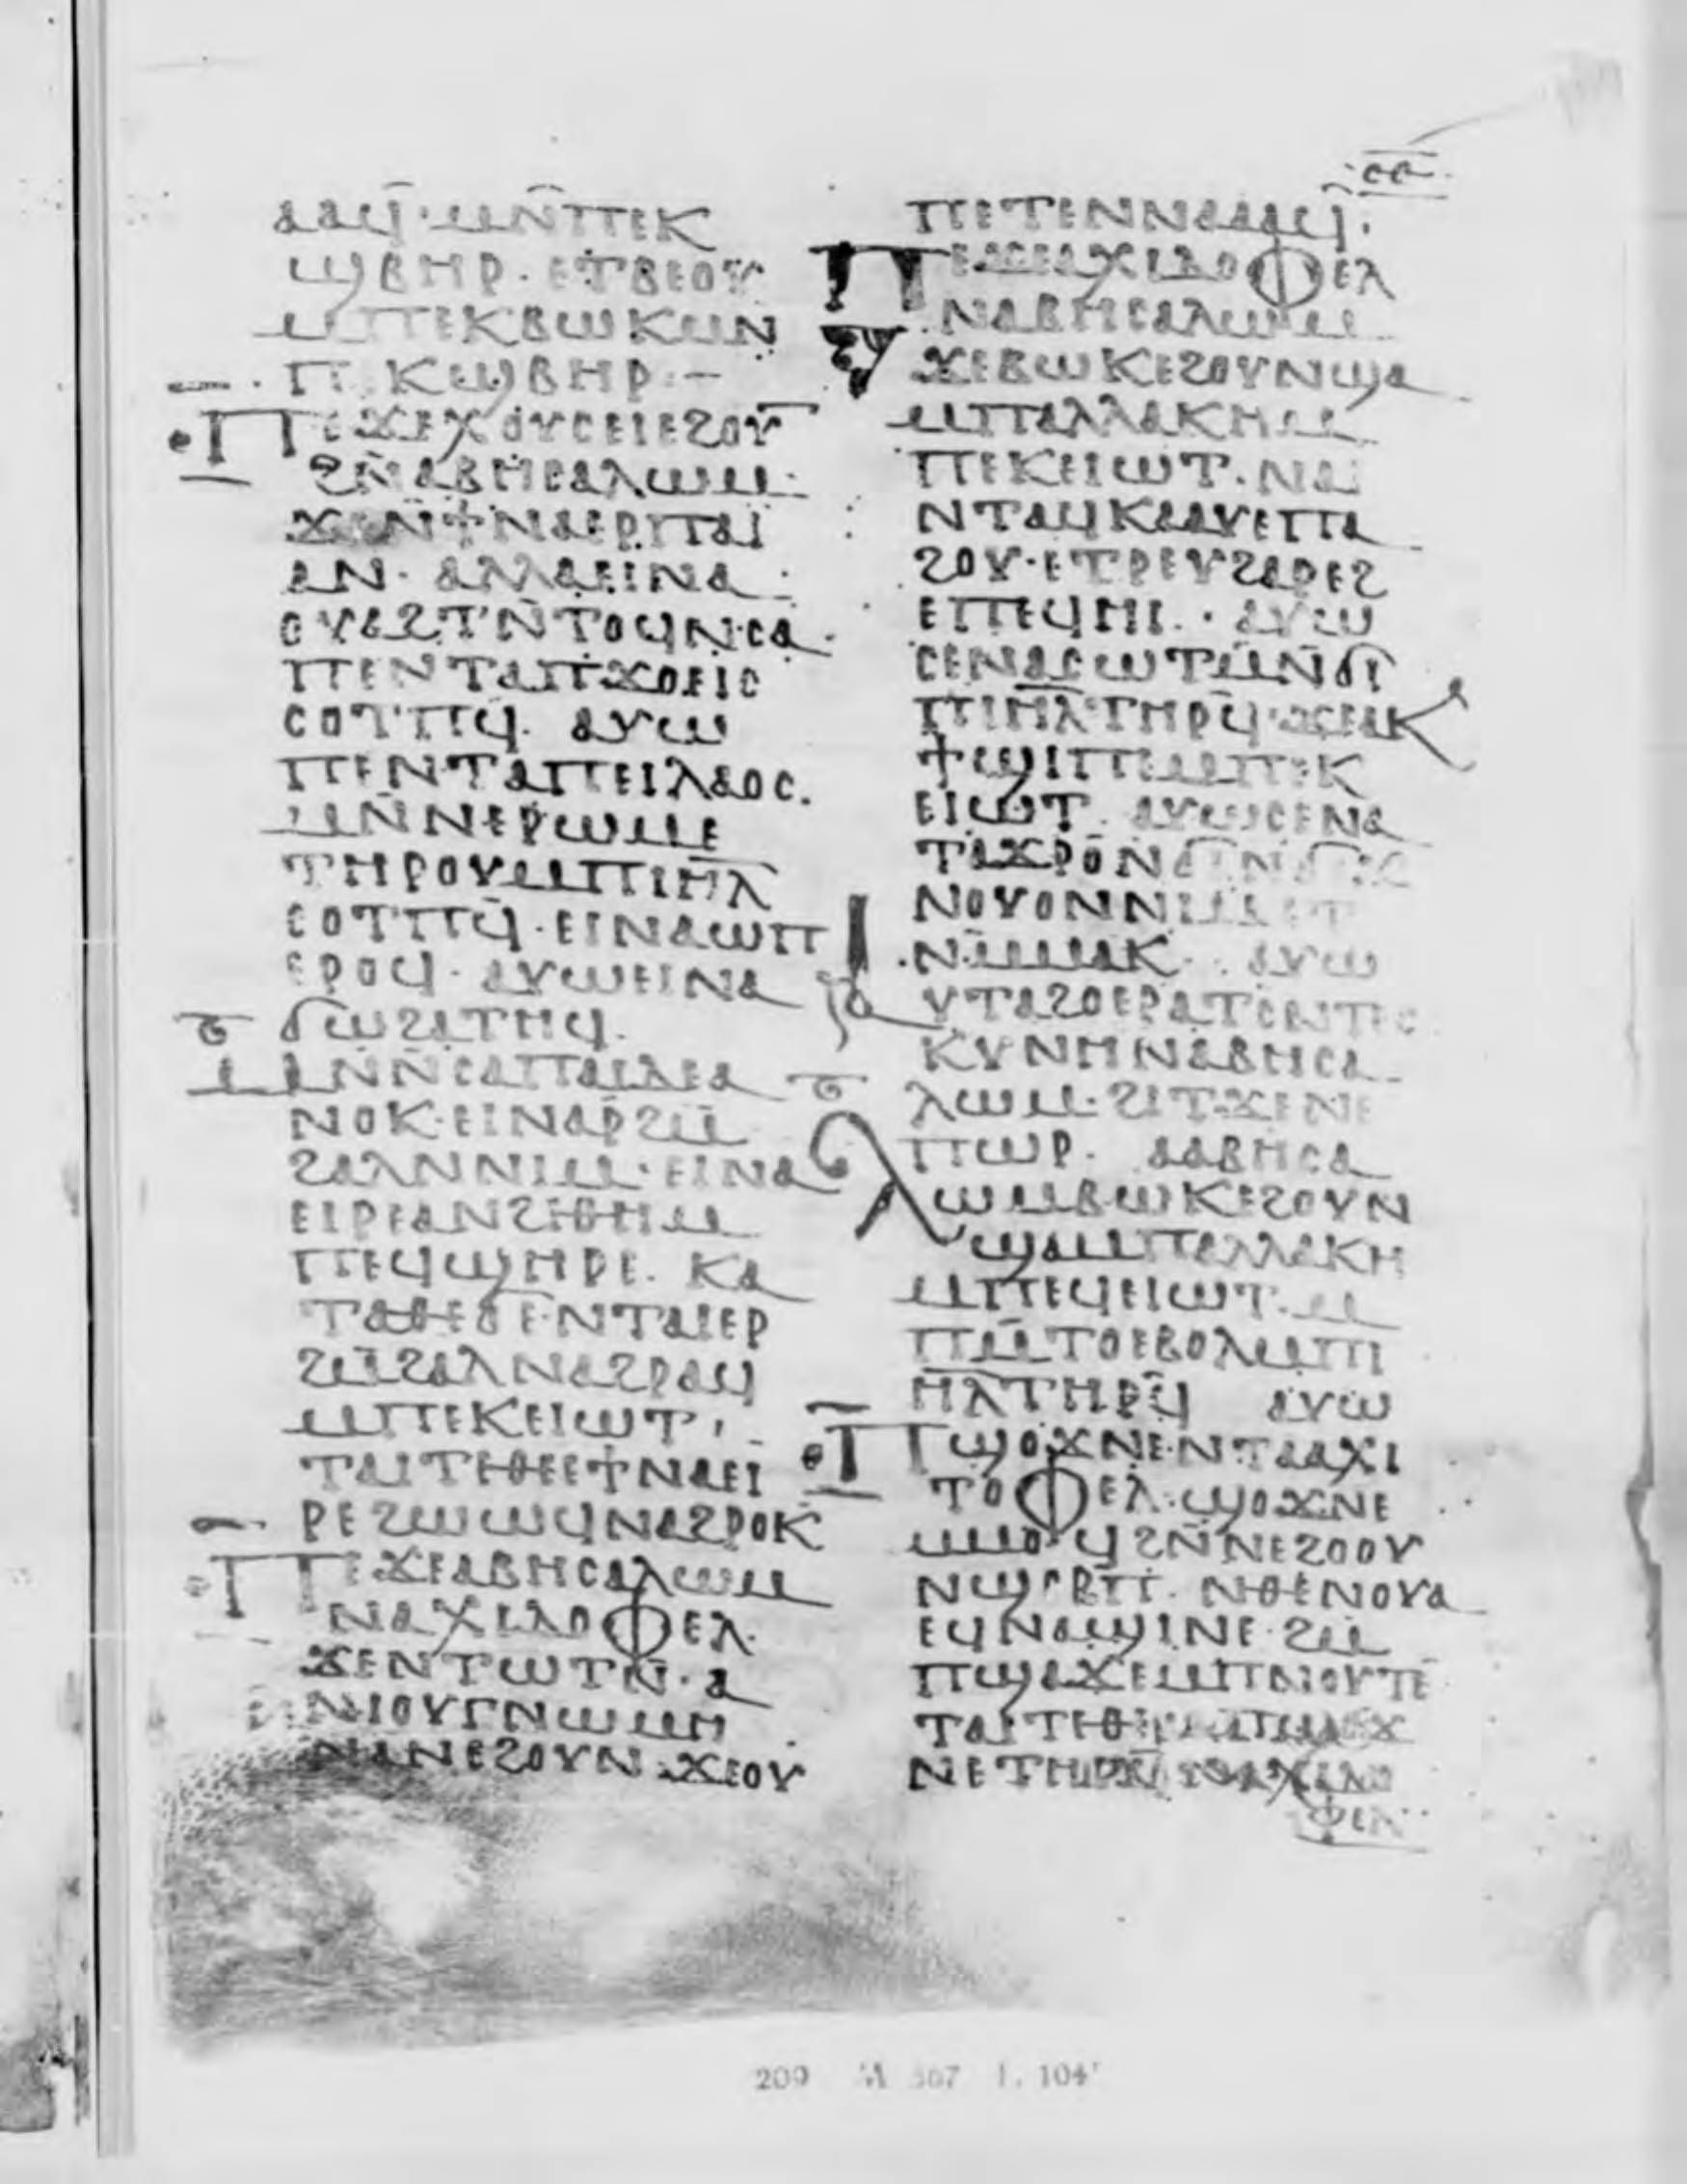 ⲥⲉ
ⲁⲁϥ̄·ⲙⲛ̄ⲡⲉⲕ
ϣⲃⲏⲣ·ⲉⲧⲃⲉⲟⲩ
ⲙⲡⲉⲕⲃⲱⲕⲙⲛ
ⲡⲉⲕϣⲃⲏⲣ:–
ⲡⲉϫⲉⲭⲟⲩⲥⲉⲓⲉϩⲟⲩ
ϩⲛ̄ⲁⲃⲏⲥⲁⲗⲱⲙ·
ϫⲉⲛϯⲛⲁⲉⲣⲡⲁⲓ
ⲁⲛ·ⲁⲗⲗⲁⲉⲓⲛⲁ
ⲟⲩⲁϩⲧⲛ̄ⲧⲟϥⲛⲥⲁ
ⲡⲉⲛⲧⲁⲡϫⲟⲉⲓⲥ
ⲥⲟⲧⲡϥ·ⲁⲩⲱ
ⲡⲉⲛⲧⲁⲡⲉⲓⲗⲁⲟⲥ·
ⲙⲛ̄ⲛⲉⲣⲱⲙⲉ
ⲧⲏⲣⲟⲩⲙⲡⲓⲏ̄ⲗ̄
ⲥⲟⲧⲡϥ̄·ⲉⲓⲛⲁϣⲡ
ⲉⲣⲟϥ·ⲁⲩⲱⲉⲓⲛⲁ
ϭⲱϩⲁⲧⲏϥ·
ⲙⲛ̄ⲛ̄ⲥⲁⲡⲁⲓⲇⲉⲁ
ⲛⲟⲕ·ⲉⲓⲛⲁⲣ̄ϩⲙ̄
ϩⲁⲗⲛⲛⲓⲙ·ⲉⲓⲛⲁ
ⲉⲓⲣⲉⲁⲛϩⲓⲑⲏⲙ
ⲡⲉϥϣⲏⲣⲉ·ⲕⲁ
ⲧⲁⲑⲉϭⲉⲛⲧⲁⲓⲉⲣ
ϩⲙ̄ϩⲁⲗⲛⲁϩⲣⲁϥ
ⲙⲡⲉⲕⲉⲓⲱⲧ·
ⲧⲁⲓⲧⲉⲑⲉⲉϯⲛⲁⲉⲓ
ⲣⲉϩⲱⲱϥⲛⲁϩⲣⲟⲕ
ⲡⲉϫⲉⲁⲃⲏⲥⲁⲗⲱⲙ
ⲛⲁⲭⲓⲇⲟⲫⲉⲗ·
ϫⲉⲛⲧⲱⲧⲛ̄·ⲁ
ⲛⲓⲟⲩⲅⲛⲱⲙⲏ
ⲛⲁⲛⲉϩⲟⲩⲛ·ϫⲉⲟⲩ
ⲡⲉⲧⲉⲛⲛⲁⲁⲁϥ̄·
ⲡⲉϫⲉⲁⲭⲓⲇⲟⲫⲉⲗ
ⲛⲁⲃⲏⲥⲁⲗⲱⲙ
ϫⲉⲃⲱⲕⲉϩⲟⲩⲛϣⲁ
ⲙⲡⲁⲗⲗⲁⲕⲏⲙ
ⲡⲉⲕⲉⲓⲱⲧ·ⲛⲁⲓ
ⲛⲧⲁϥⲕⲁⲁⲩⲉⲡⲁ
ϩⲟⲩ·ⲉⲧⲣⲉⲩϩⲁⲣⲉϩ
ⲉⲡⲉϥⲏⲓ··ⲁⲩⲱ
ⲥⲉⲛⲁⲥⲱⲧⲙ̄ⲛ̄ϭⲓ
ⲡⲓⲏ̄ⲗ̄ⲧⲏⲣϥ̄·ϫⲉⲁⲕ
ϯϣⲓⲡⲉⲙⲡⲉⲕ
ⲉⲓⲱⲧ·ⲁⲩⲱⲥⲉⲛⲁ
ⲧⲁϫⲣⲟⲛϭⲓⲛϭⲓϫ
ⲛⲟⲩⲟⲛⲛⲓⲙⲉⲧ
ⲛⲙⲙⲁⲕ·ⲁⲩⲱ
ⲁⲩⲧⲁϩⲟⲉⲣⲁⲧⲥⲛⲧⲉⲥ
ⲕⲩⲛⲏⲛⲁⲃⲏⲥⲁ
ⲗⲱⲙ·ϩⲓⲧϫⲉⲛⲉ
ⲡⲱⲣ·ⲁⲁⲃⲏⲥⲁ
ⲗⲱⲙⲃⲱⲕⲉϩⲟⲩⲛ
ϣⲁⲙⲡⲁⲗⲗⲁⲕⲏ
ⲙⲡⲉϥⲉⲓⲱⲧ·ⲙ
ⲡⲙ̄ⲧⲟⲉⲃⲟⲗⲙⲡⲓ
ⲏ̄ⲗ̄ⲧⲏⲣϥ̄ ⲁⲩⲱ
ⲡϣⲟϫⲛⲉ·ⲛⲧⲁⲁⲭⲓ
ⲧⲟⲫⲉⲗ·ϣⲟϫⲛⲉ
ⲙⲙⲟϥϩⲛ̄ⲛⲉϩⲟⲟⲩ
ⲛϣⲟⲣⲡ̄·ⲛⲑⲉⲛⲟⲩⲁ
ⲉϥⲛⲁϣⲓⲛⲉ·ϩⲙ
ⲡϣⲁϫⲉⲙⲡⲛⲟⲩⲧⲉ
ⲧⲁⲓⲧⲉⲑⲉⲙⲡϣⲟϫ
ⲛⲉⲧⲏⲣϥ̄ⲛⲁⲭⲓⲇⲟ
ⲫⲉⲗ
209 M 567 f. 104ʳ